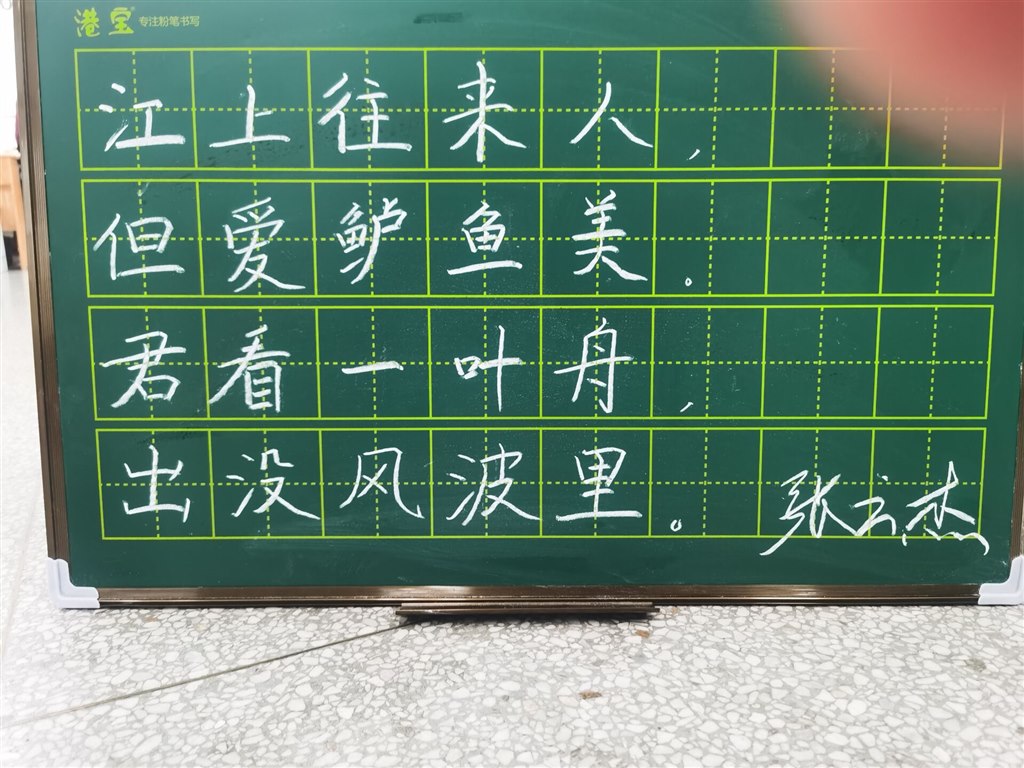 港宝 专注粉笔书写
江上往来人，
但爱鲈鱼美。
君看一叶舟，
出没风波里。 张云杰